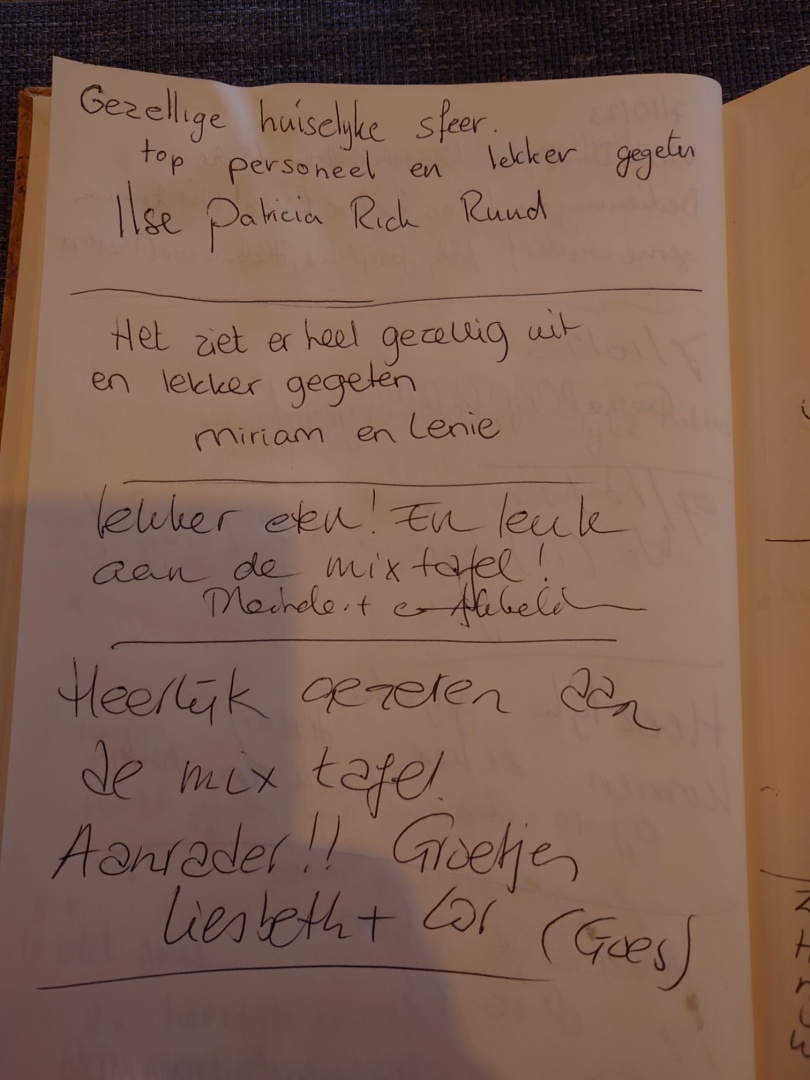 Gezellige huiselyke sfeer.
top personeel en lekker gegeten
Ilse Patricia Rich Ruud
Het ziet er heel gezellig uit
en lekker gegeten
miriam en Lenie
lekker eten! En leuk
aan de mix tafel!
Heerlijk gezeten aan
de mix tafel.
Aanrader!! Groetjes
Liesbeth + Cor (Goes)